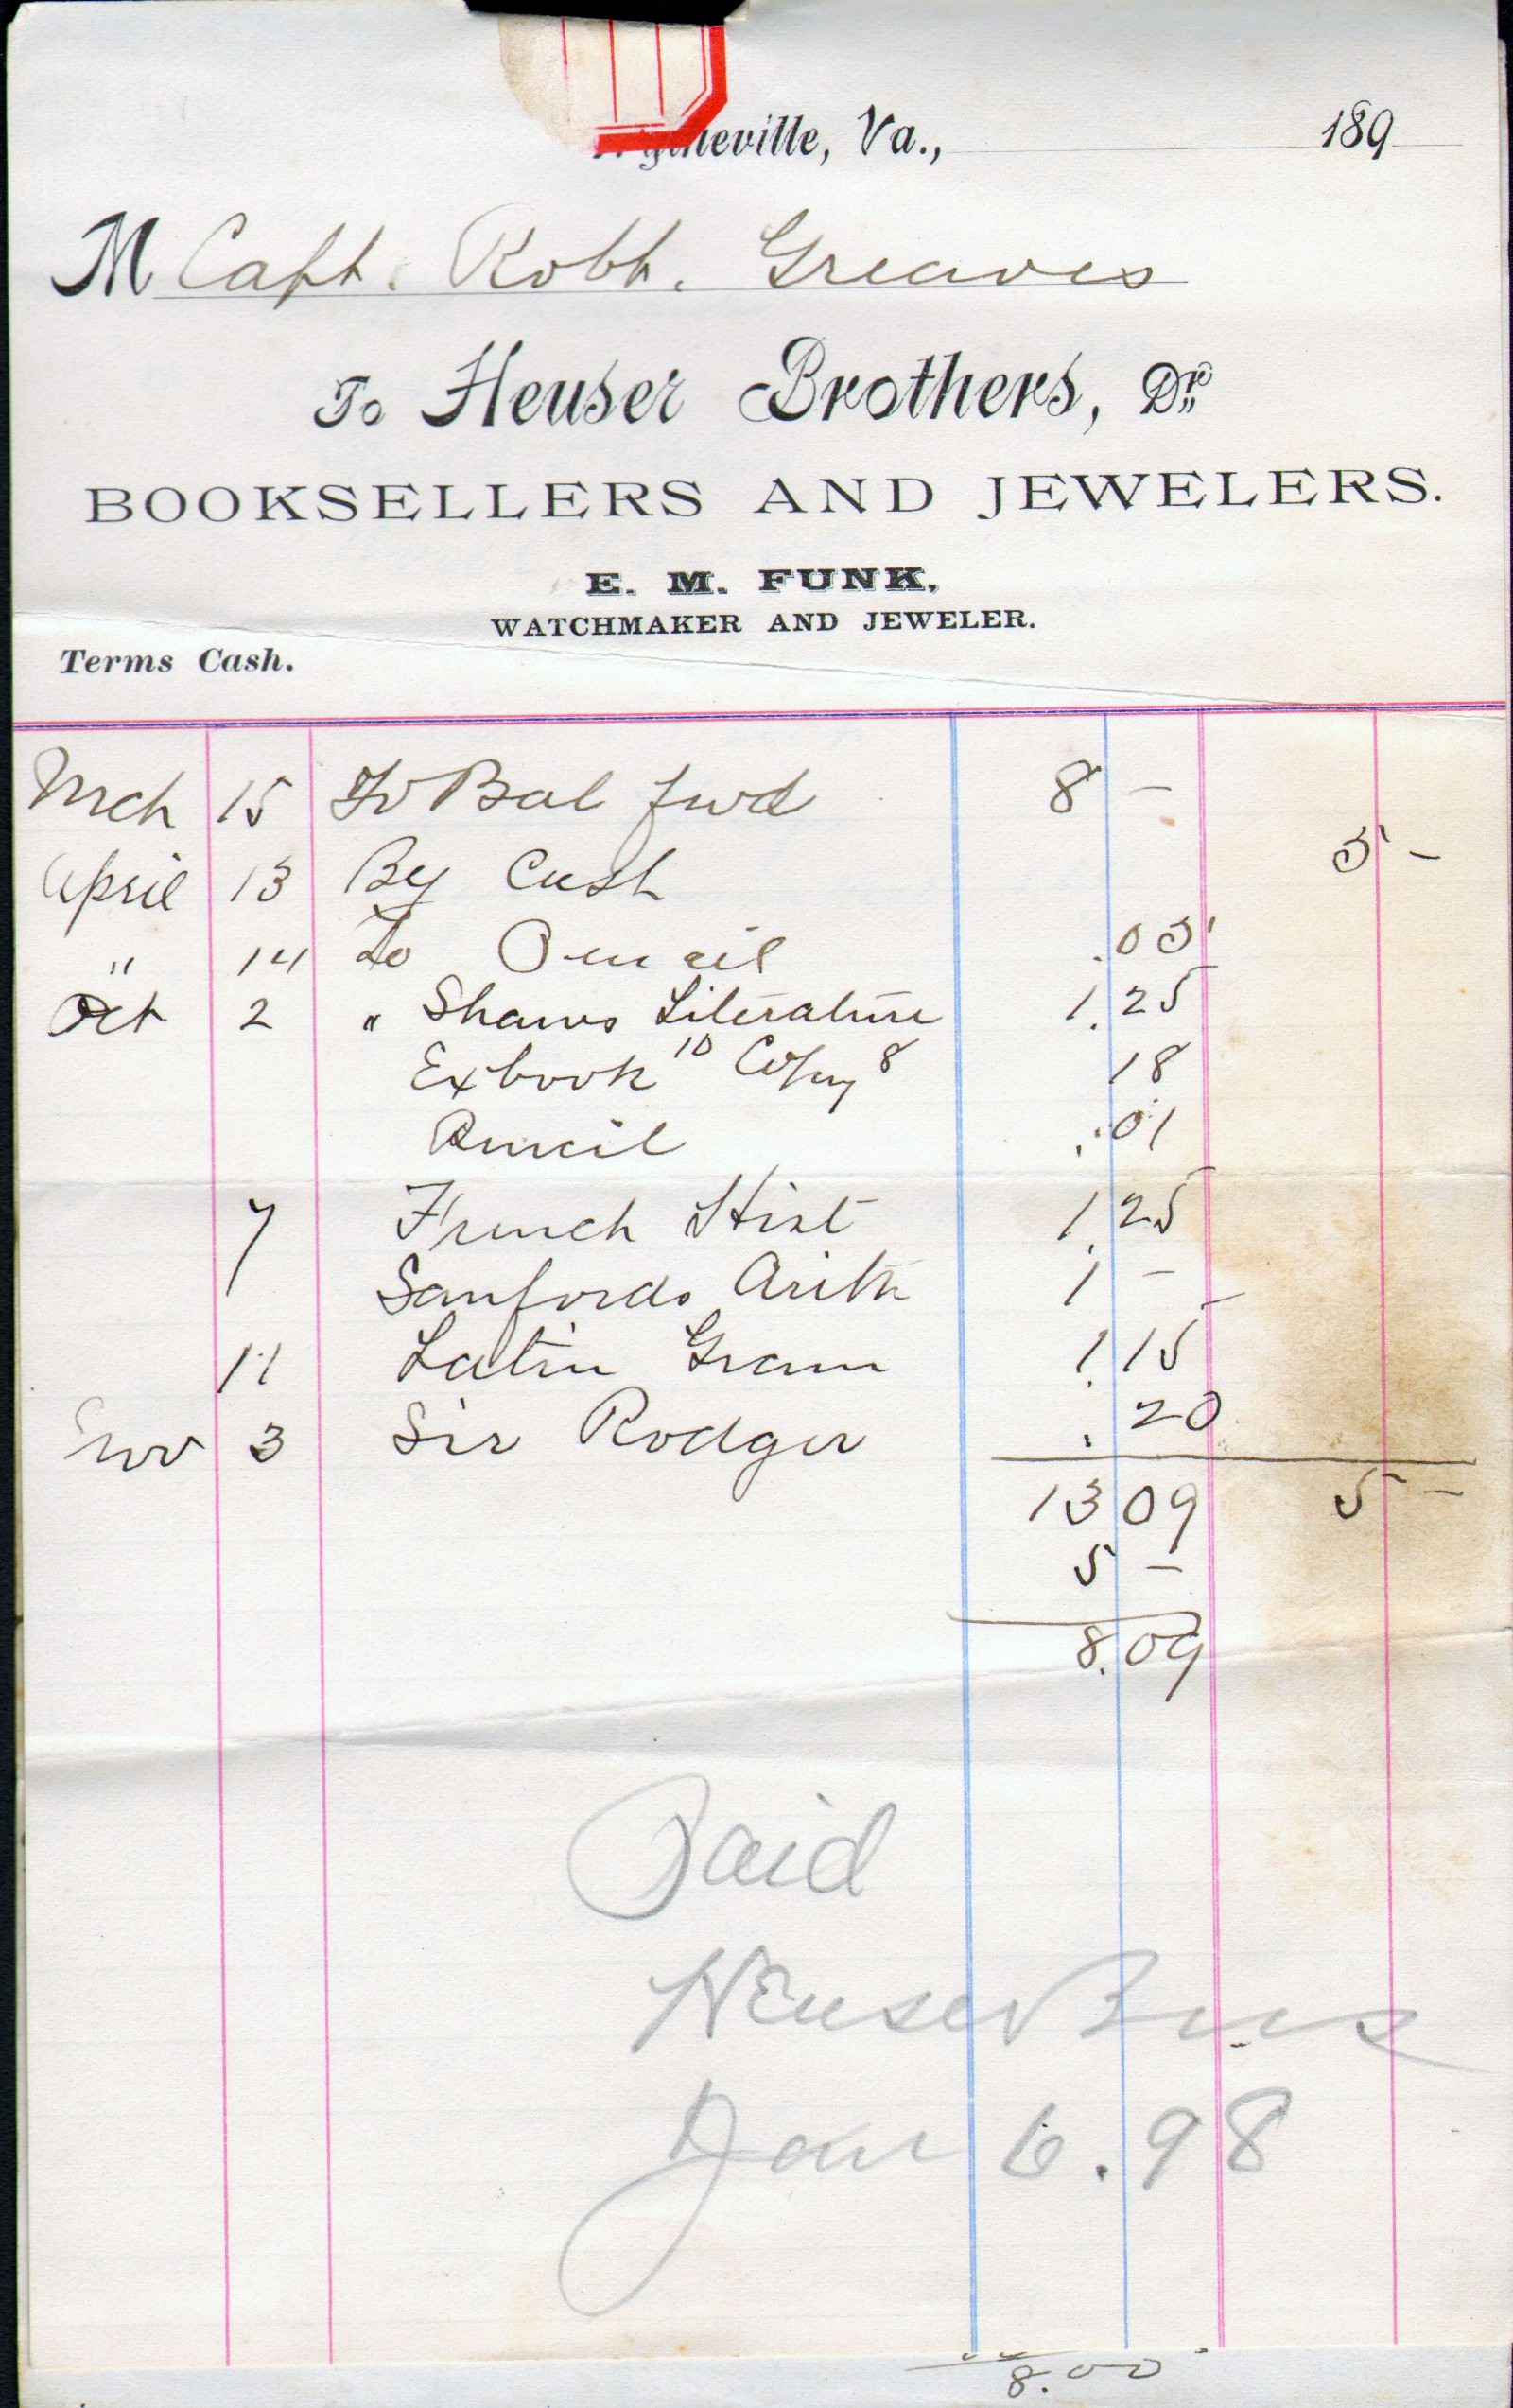 Va., 189
M Capt. Robt. Greaves
To Heuser Brothers, Dr
BOOKSELLERS AND JEWELERS.
E. M. FUNK,
WATCHMAKER AND JEWELER.
Terms Cash.
Mch 15 To Bal fwd 8 –
April 13 By Cash 5 –
" 14 To Pencil .05
Oct 2 " Shaws Literature 1.25
Exbook 10 Copy 8 18
Pencil .01
7 French Hist 1.25
Sanfords Arith 1 –
11 Latin Gram 1.15
Nov 3 Sir Rodger .20
13 09 5 –
5 –
8.09
Paid
Heuser Bros
Jan 6. 98
8.00